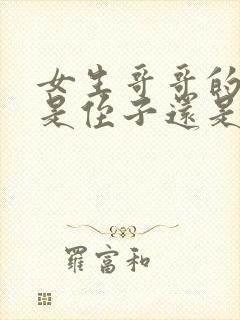 女生哥哥的
是侄子還是
羅富和